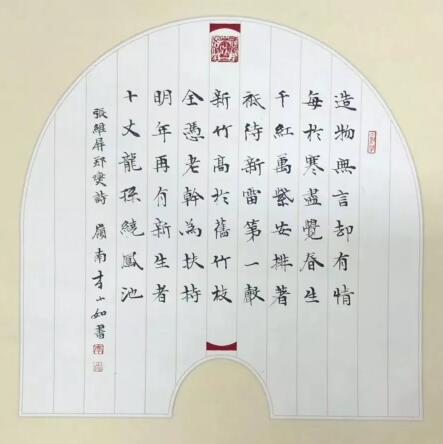 造物無言却有情
每於寒盡覺春生
千紅萬紫安排著
祗待新雷第一聲
新竹高於舊竹枝
全憑老幹為扶持
明年再有新生者
十丈龍孫繞鳳池
張維屏鄭燮詩 嶺南李小如書